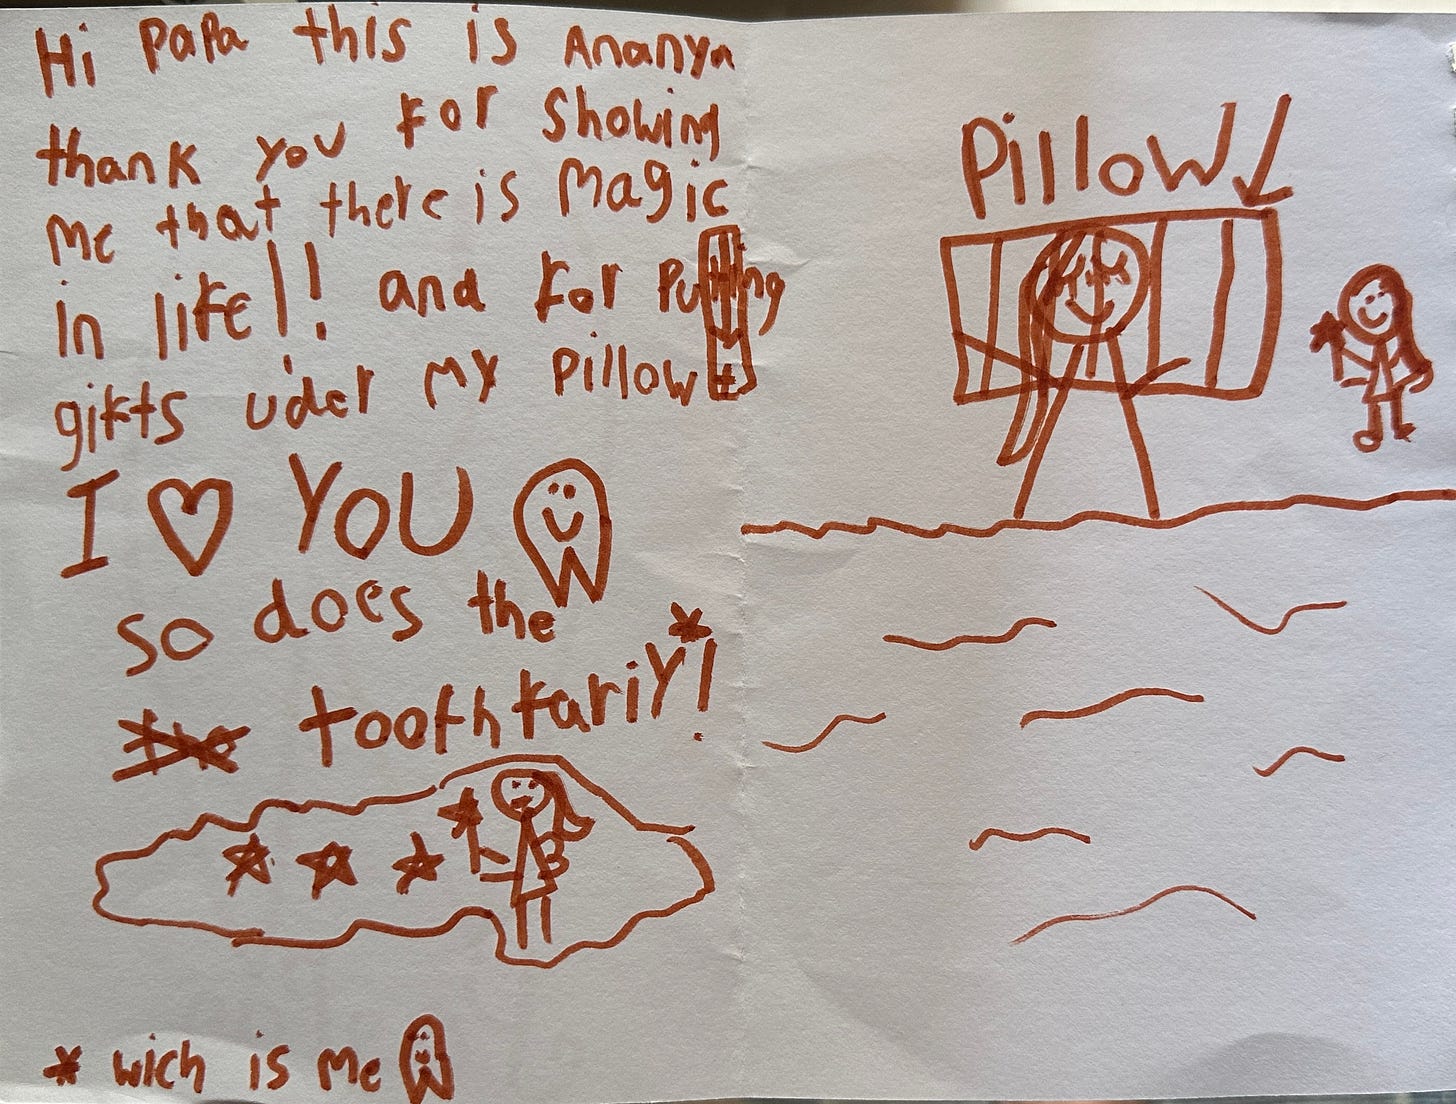 Hi PaPa this is Ananya
thank you for showing
me that there is Magic
in life!! and for putting
gifts uder my pillow
I ♡ YOU
so does the
toothfariy*!
* wich is me
Pillow↓